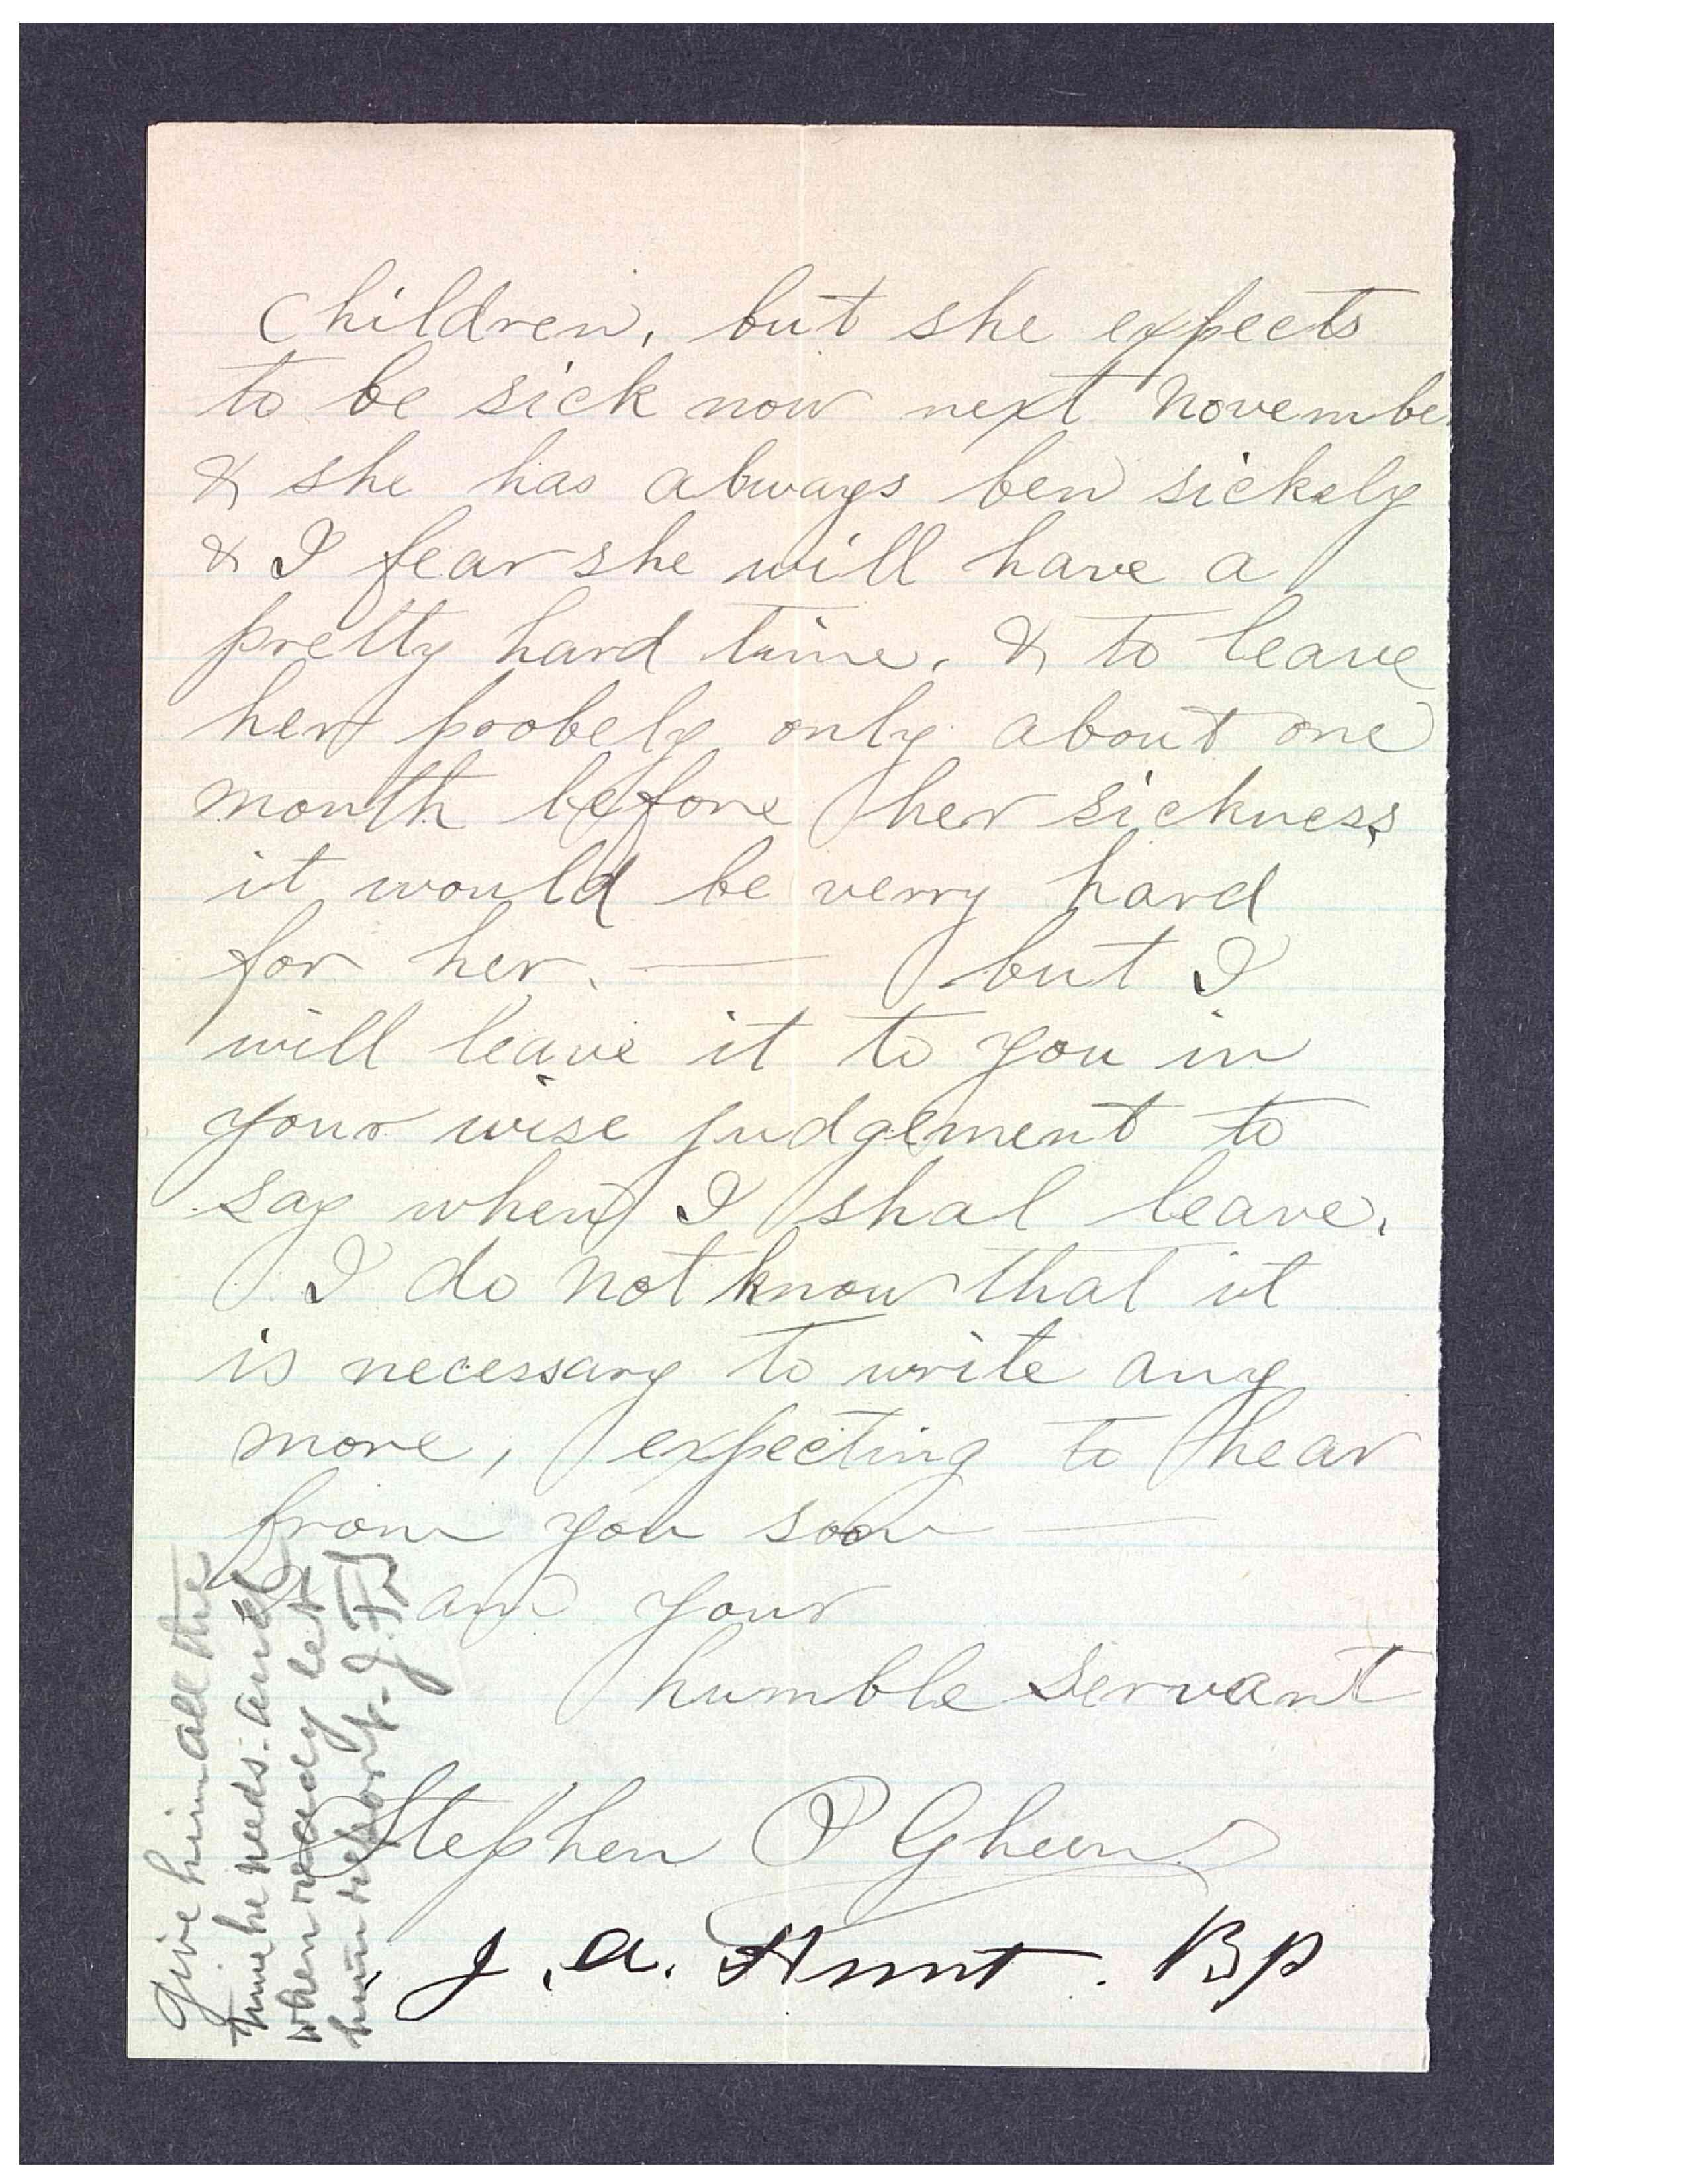 children, but she expects
to be sick now next Novembe
& she has always ben sickely
& I fear she will have a
pretty hard time. & to leave
her poobely only about one
month before her sickness
it would be verry hard
for her. — but I
will leave it to you in
your wise judgement to
say when I shal leave.
I do not know that it
is necessary to write any
more, expecting to hear
from you soon —
I am your
humble servant
Stephen P Gheen
J. A. Hunt. BP
Give him all the
time he needs. and
when ready let
him report. J. F. S